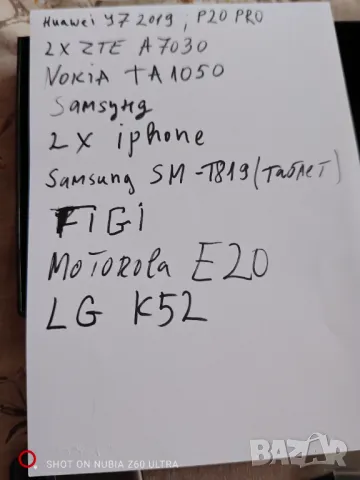 Huawei Y7 2019, P20 PRO
2X ZTE A7030
NOKIA TA1050
Samsyнg
2X iphone
Samsung SM-T819 (таблет)
FIGI
MOTOROLA E20
LG K52
SHOT ON NUBIA Z60 ULTRA
BAZAR
bg